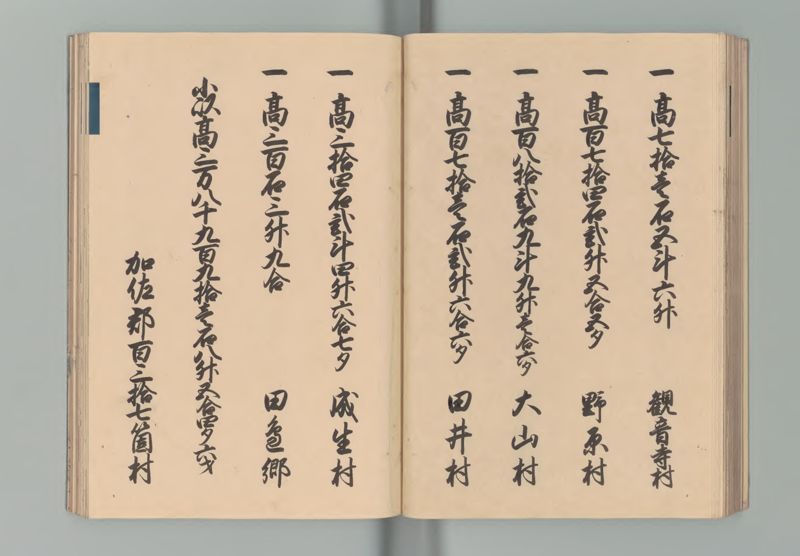 一 高七拾壱石五斗六升 観音寺村
一 高百七拾四石弐升五合五夕 野原村
一 高百八拾弐石九斗九升壱合六夕 大山村
一 高百七拾壱石弐升六合六夕 田井村
一 高三拾四石弐斗四升六合七夕 成生村
一 高三百石三升九合 田邉郷
小以高三万八千九百九拾壱石八升五合四夕六才
加佐郡百三拾七箇村